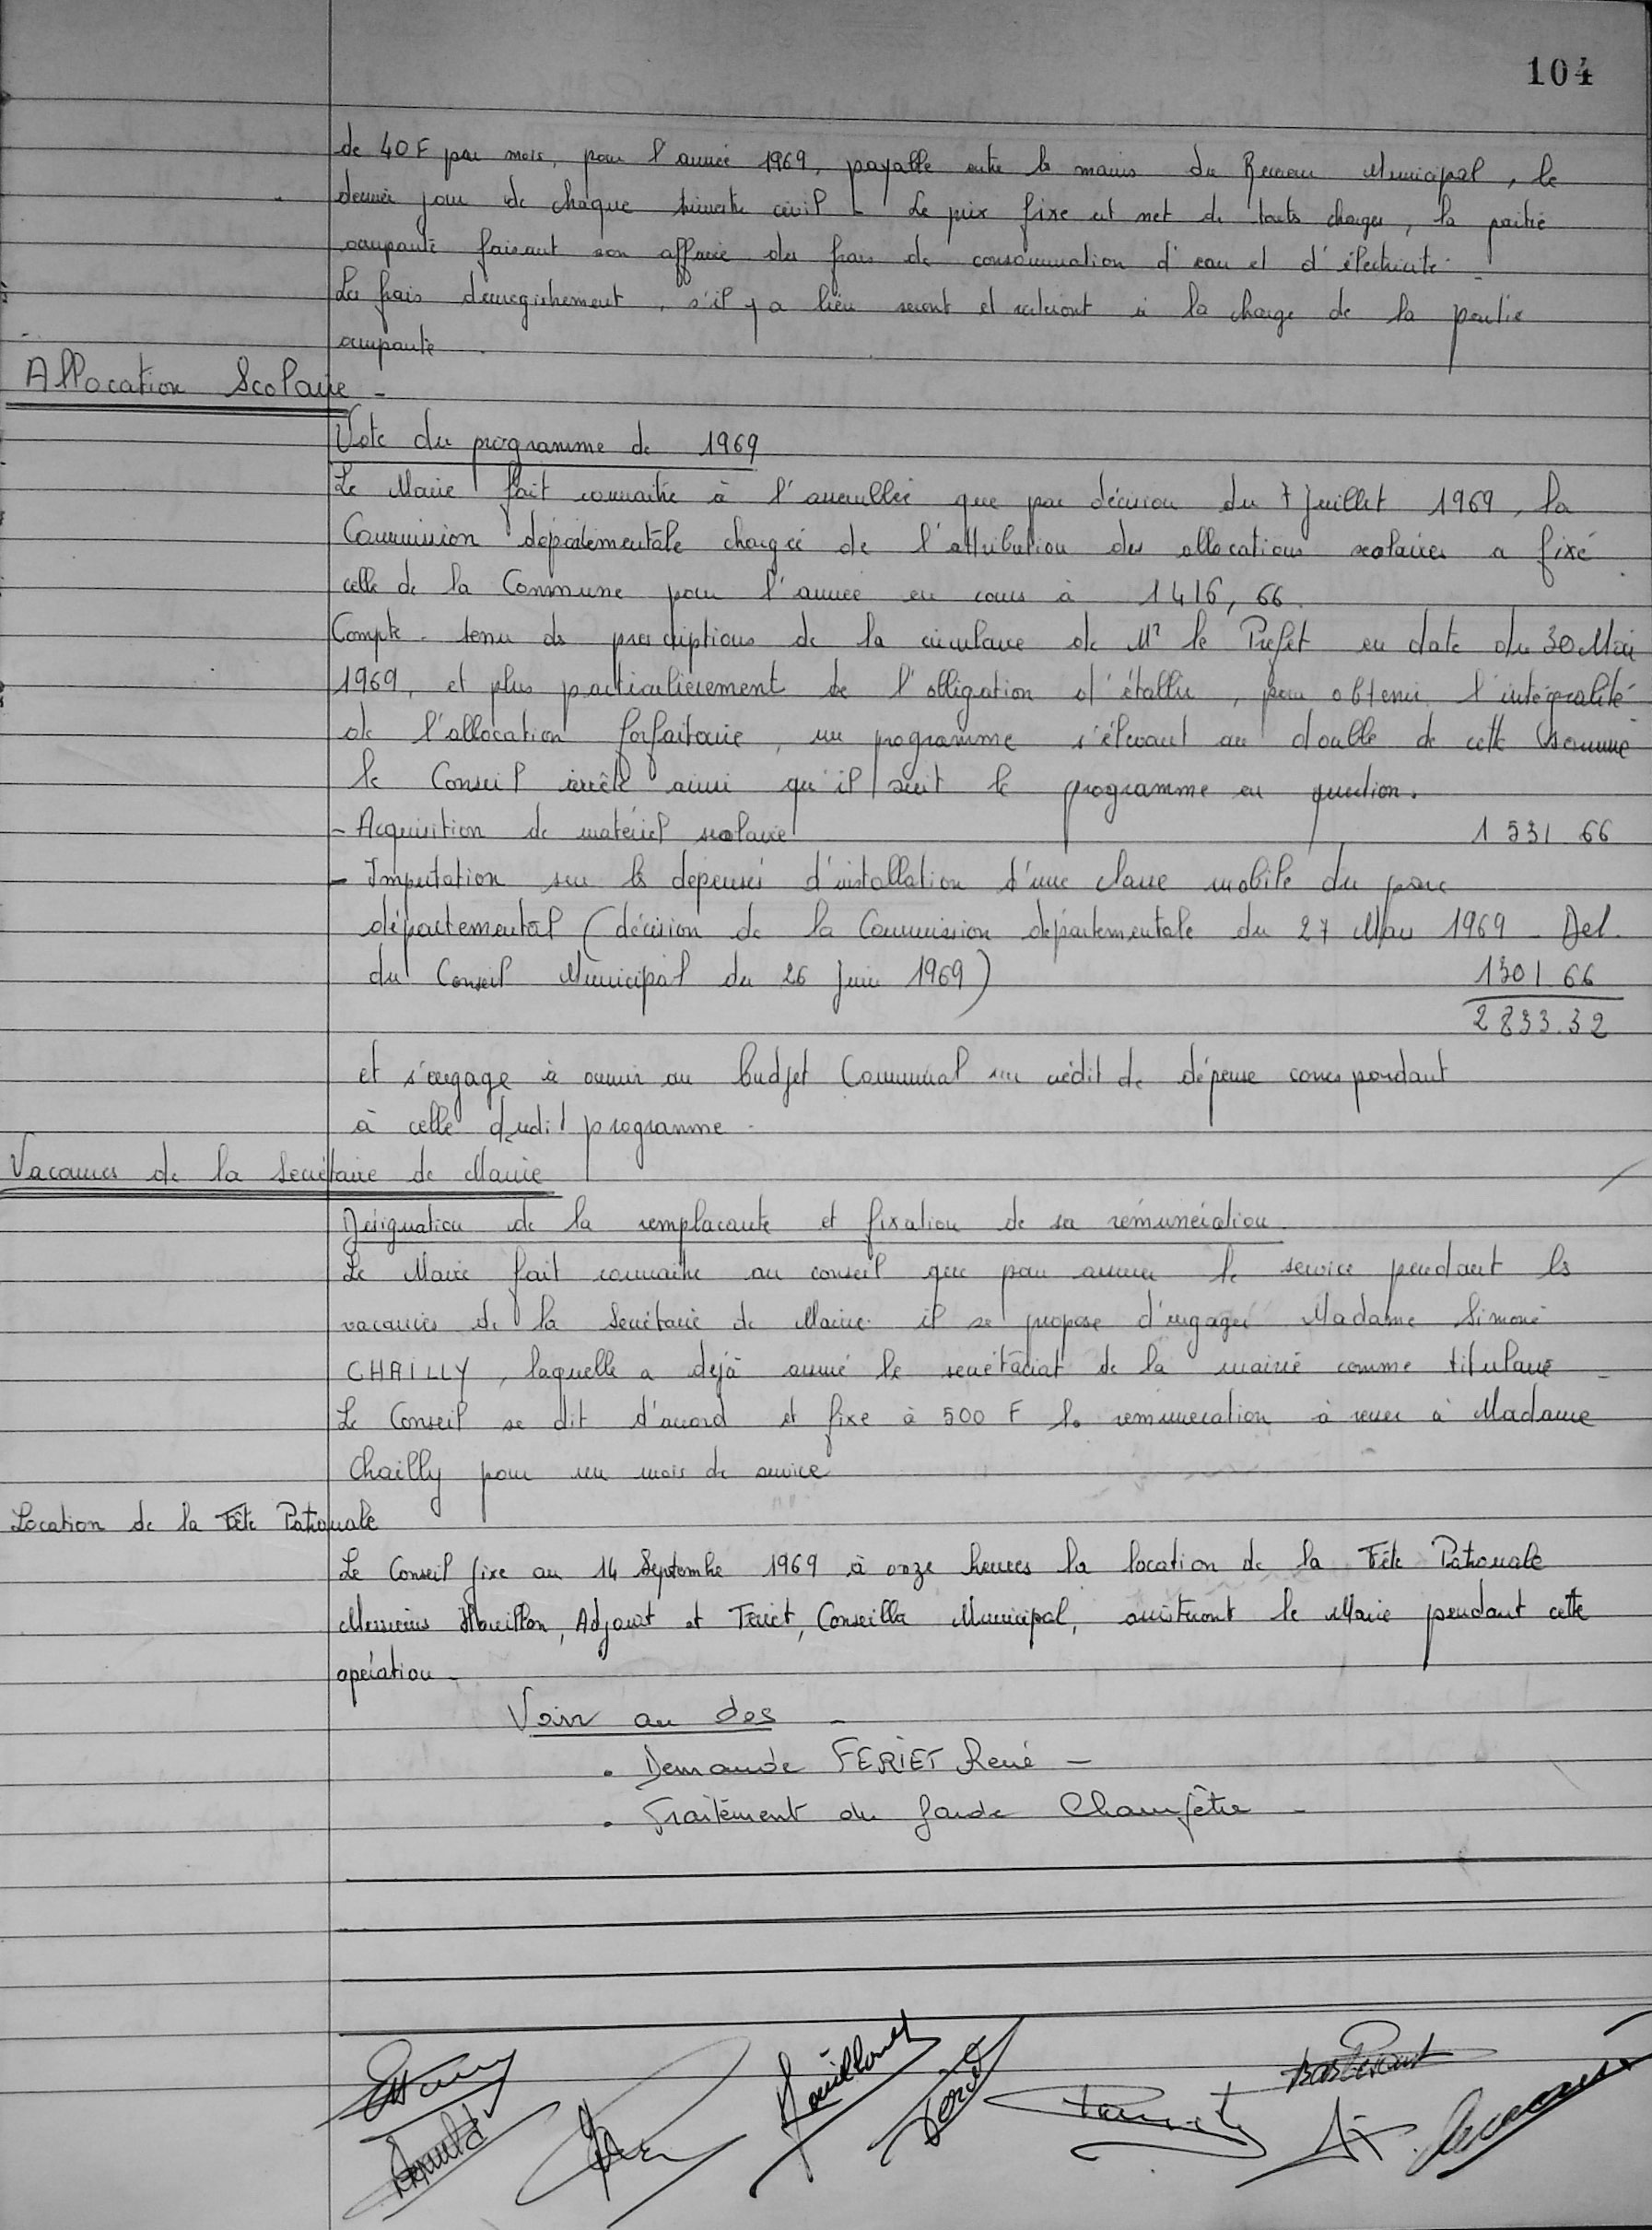 104
de 40F par mois, pour l'année 1969, payable entre les mains du Receveur Municipal, le
dernier jour de chaque trimestre civil - Le prix fixé est net de toutes charges, la partie
occupante faisant son affaire des frais de consommation d'eau et d'électricité.
Les frais d'enregistrement, s'il y a lieu seront et resteront à la charge de la partie
occupante.
Allocation Scolaire -
Vote du programme de 1969
Le Maire fait connaître à l'assemblée que par décision du 7 Juillet 1969, la
Commission départementale chargée de l'attribution des allocations scolaires a fixé
celle de la Commune pour l'année en cours à 1416,66.
Compte-tenu des prescriptions de la circulaire de Mr le Préfet en date du 30 Mai
1969, et plus particulièrement de l'obligation d'établir, pour obtenir l'intégralité
de l'allocation forfaitaire, un programme s'élevant au double de cette somme
le Conseil arrête ainsi qu'il suit le programme en question.
- Acquisition de matériel scolaire 1 531 66
- Imputation sur les dépenses d'installation d'une classe mobile du parc
départemental (décision de la Commission départementale du 27 Mars 1969 - Del.
du Conseil Municipal du 26 Juin 1969) 1301.66
2833.32
et s'engage à ouvrir au budget Communal un crédit de dépense correspondant
à celle dudit programme.
Vacances de la Secrétaire de Mairie
Désignation de la remplacante et fixation de sa rémunération.
Le Maire fait connaître au conseil que pour assurer le service pendant les
vacances de la Secrétaire de Mairie il se propose d'engager Madame Simone
CHAILLY, laquelle a déjà assuré le secrétariat de la mairie comme titulaire -
Le Conseil se dit d'accord et fixe à 500 F la rémunération à verser à Madame
Chailly pour un mois de service
Location de la Fête Patronale
Le Conseil fixe au 14 Septembre 1969 à onze heures la location de la Fête Patronale
Messieurs Houillon, Adjoint et Feriet, Conseiller Municipal, assisteront le Maire pendant cette
opération -
Voir au dos -
. Demande FERIET René -
. Traitement du Garde Champêtre -